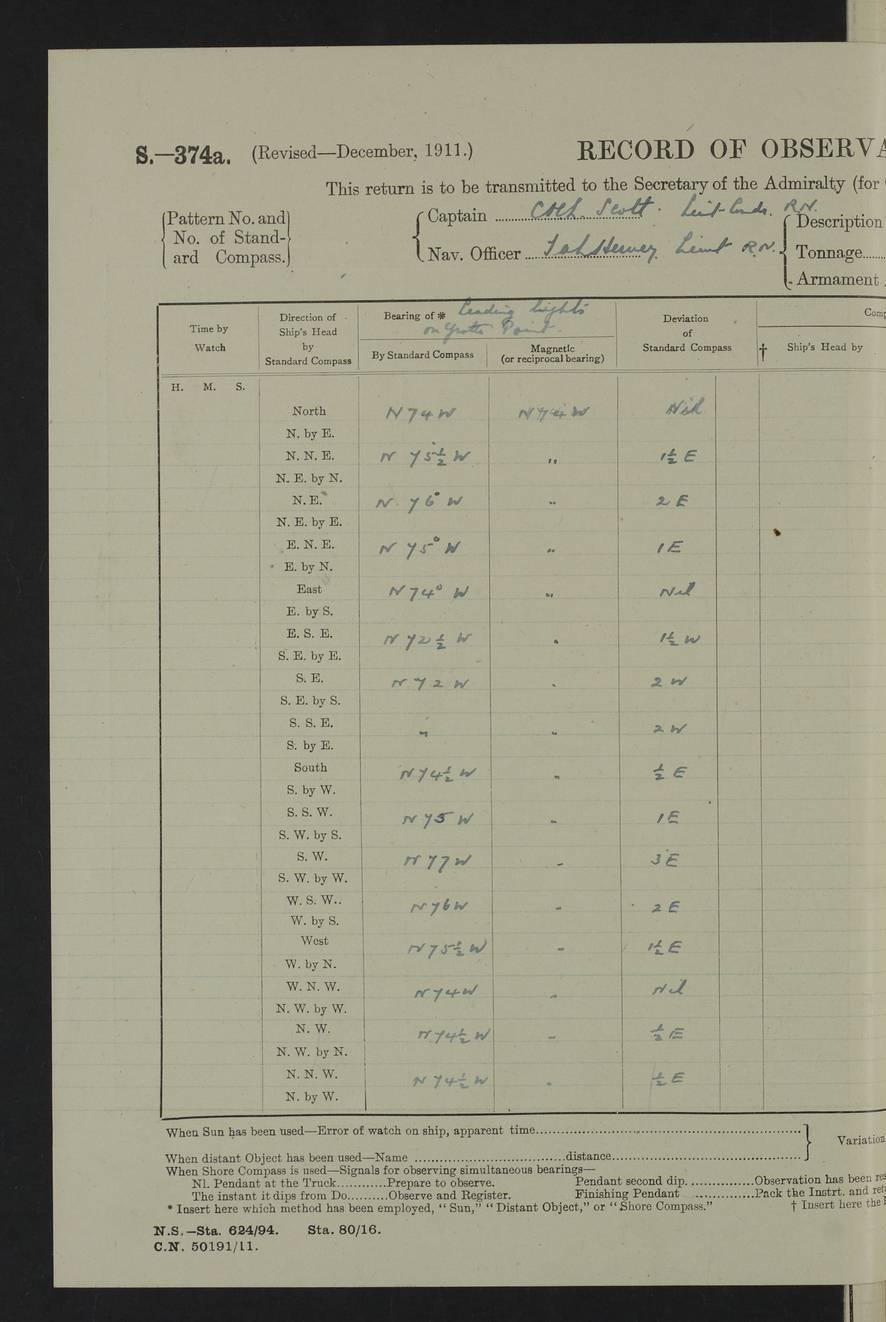 S.—374a. (Revised—December, 1911.) RECORD OF OBSERVA
This return is to be transmitted to the Secretary of the Admiralty (for
Pattern No. and No. of Standard Compass.
Captain Scott. Lieut-Comdr. R.N.
Nav. Officer Lieut R.N.
Description
Tonnage
Armament
Time by Watch
Direction of Ship's Head by Standard Compass
Bearing of * leading lights on Point.
By Standard Compass
Magnetic (or reciprocal bearing)
Deviation of Standard Compass
Comp
† Ship's Head by
H. M. S.
North N 74 W N 74 W Nil
N. by E.
N. N. E. N 75½ W " 1½ E
N. E. by N.
N. E. N 76° W " 2 E
N. E. by E.
E. N. E. N 75° W " 1 E
E. by N.
East N 74° W " Nil
E. by S.
E. S. E. N 72½ W " 1½ W
S. E. by E.
S. E. N 72 W " 2 W
S. E. by S.
S. S. E. " " 2 W
S. by E.
South N 74½ W " ½ E
S. by W.
S. S. W. N 75 W " 1 E
S. W. by S.
S. W. N 77 W " 3 E
S. W. by W.
W. S. W.. N 76 W " 2 E
W. by S.
West N 75½ W " 1½ E
W. by N.
W. N. W. N 74 W " Nil
N. W. by W.
N. W. N 74½ W " ½ E
N. W. by N.
N. N. W. N 74½ W " ½ E
N. by W.
When Sun has been used—Error of watch on ship, apparent time
Variation
When distant Object has been used—Name distance
When Shore Compass is used—Signals for observing simultaneous bearings—
Nl. Pendant at the Truck Prepare to observe. Pendant second dip. Observation has been
The instant it dips from Do. Observe and Register. Finishing Pendant Pack the Instrt. and
* Insert here which method has been employed, "Sun," "Distant Object," or "Shore Compass." † Insert here the
N.S.—Sta. 624/94. Sta. 80/16.
C.N. 50191/11.